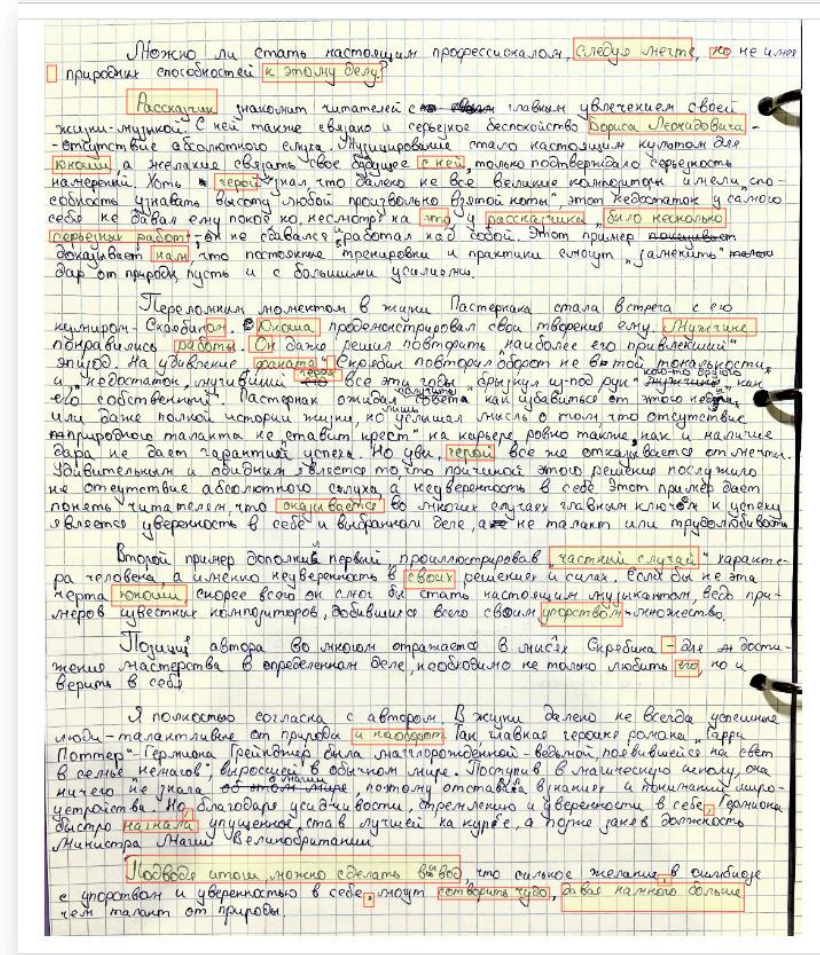 Можно ли стать настоящим профессионалом, следуя мечте, но не имея
природных способностей к этому делу?
Рассказчик знакомит читателей с главным увлечением своей
жизни-музыкой. С ней также связано и серьезное беспокойство Бориса Леонидовича -
-отсутствие абсолютного слуха. Музицирование стало настоящим культом для
юноши, а желание связать свое будущее с ней, только подтверждало серьезность
намерений. Хоть герой знал что далеко не все великие композиторы имели „спо-
собность узнавать высоту любой произвольно взятой ноты", этот недостаток у самого
себя не давал ему покоя но, несмотря на это у рассказчика „было несколько
серьезных работ", он не сдавался и работал над собой. Этот пример
доказывает нам, что постоянные тренировки и практики смогут „заменить"
дар от природы, пусть и с большими усилиями.
Переломным моментом в жизни Пастернака стала встреча с его
кумиром- Скрябиным. Юноша продемонстрировал свои творения ему. Мужчине
понравились работы. Он даже решил повторить „наиболее его привлекший"
эпизод. На удивление фаната", Скрябин повторил оборот не в той тональности,
и „недостаток, мучивший героя все эти годы, брызнул из-под рук" кого-то другого „как
его собственный". Пастернак ожидал услышать совета как избавиться от этого
или даже полной истории жизни, но услышал лишь мысль о том, что отсутствие
природного таланта не „ставит крест" на карьере, ровно также, как и наличие
дара не дает гарантий успеха. Но увы, герой все же отказывается от мечты.
Удивительным и обидным является то, что причиной этого решения послужило
не отсутствие абсолютного слуха, а неуверенность в себе Этот пример дает
понять читателям, что оказывается во многих случаях главным ключом к успеху
является уверенность в себе и выбранном деле, а не талант или трудолюбивость
Второй пример дополнил первый, проиллюстрировав „частный случай" характе-
ра человека, а именно неуверенность в своих решениях и силах. Если бы не эта
черта юноши скорее всего он смог бы стать настоящим музыкантом, ведь при-
меров известных композиторов, добившихся всего своим упорством-множество.
Позиция автора во многом отражается в мыслях Скрябина - для дости-
жения мастерства в определенном деле, необходимо не только любить его, но и
верить в себя
Я полностью согласна с автором. В жизни далеко не всегда успешные
люди-талантливые от природы и наоборот. Так главная героиня романа „Гарри
Поттер"- Гермиона Грейнджер была магглорожденной-ведьмой, появившейся на свет
в семье немагов, выросшей в обычном мире. Поступив в магическую школу, она
ничего не знала о магии, поэтому отставала в знаниях и понимании миро-
устройства. Но, благодаря усидчивости, стремлению и уверенности в себе, Гермиона
быстро нагнала упущенное, став лучшей на курсе, а позже заняв должность
Министра Магии Великобритании.
Подводя итоги, можно сделать вывод, что сильное желание, в симбиозе
с упорством и уверенностью в себе, могут сотворить чудо, давая намного больше
чем талант от природы.